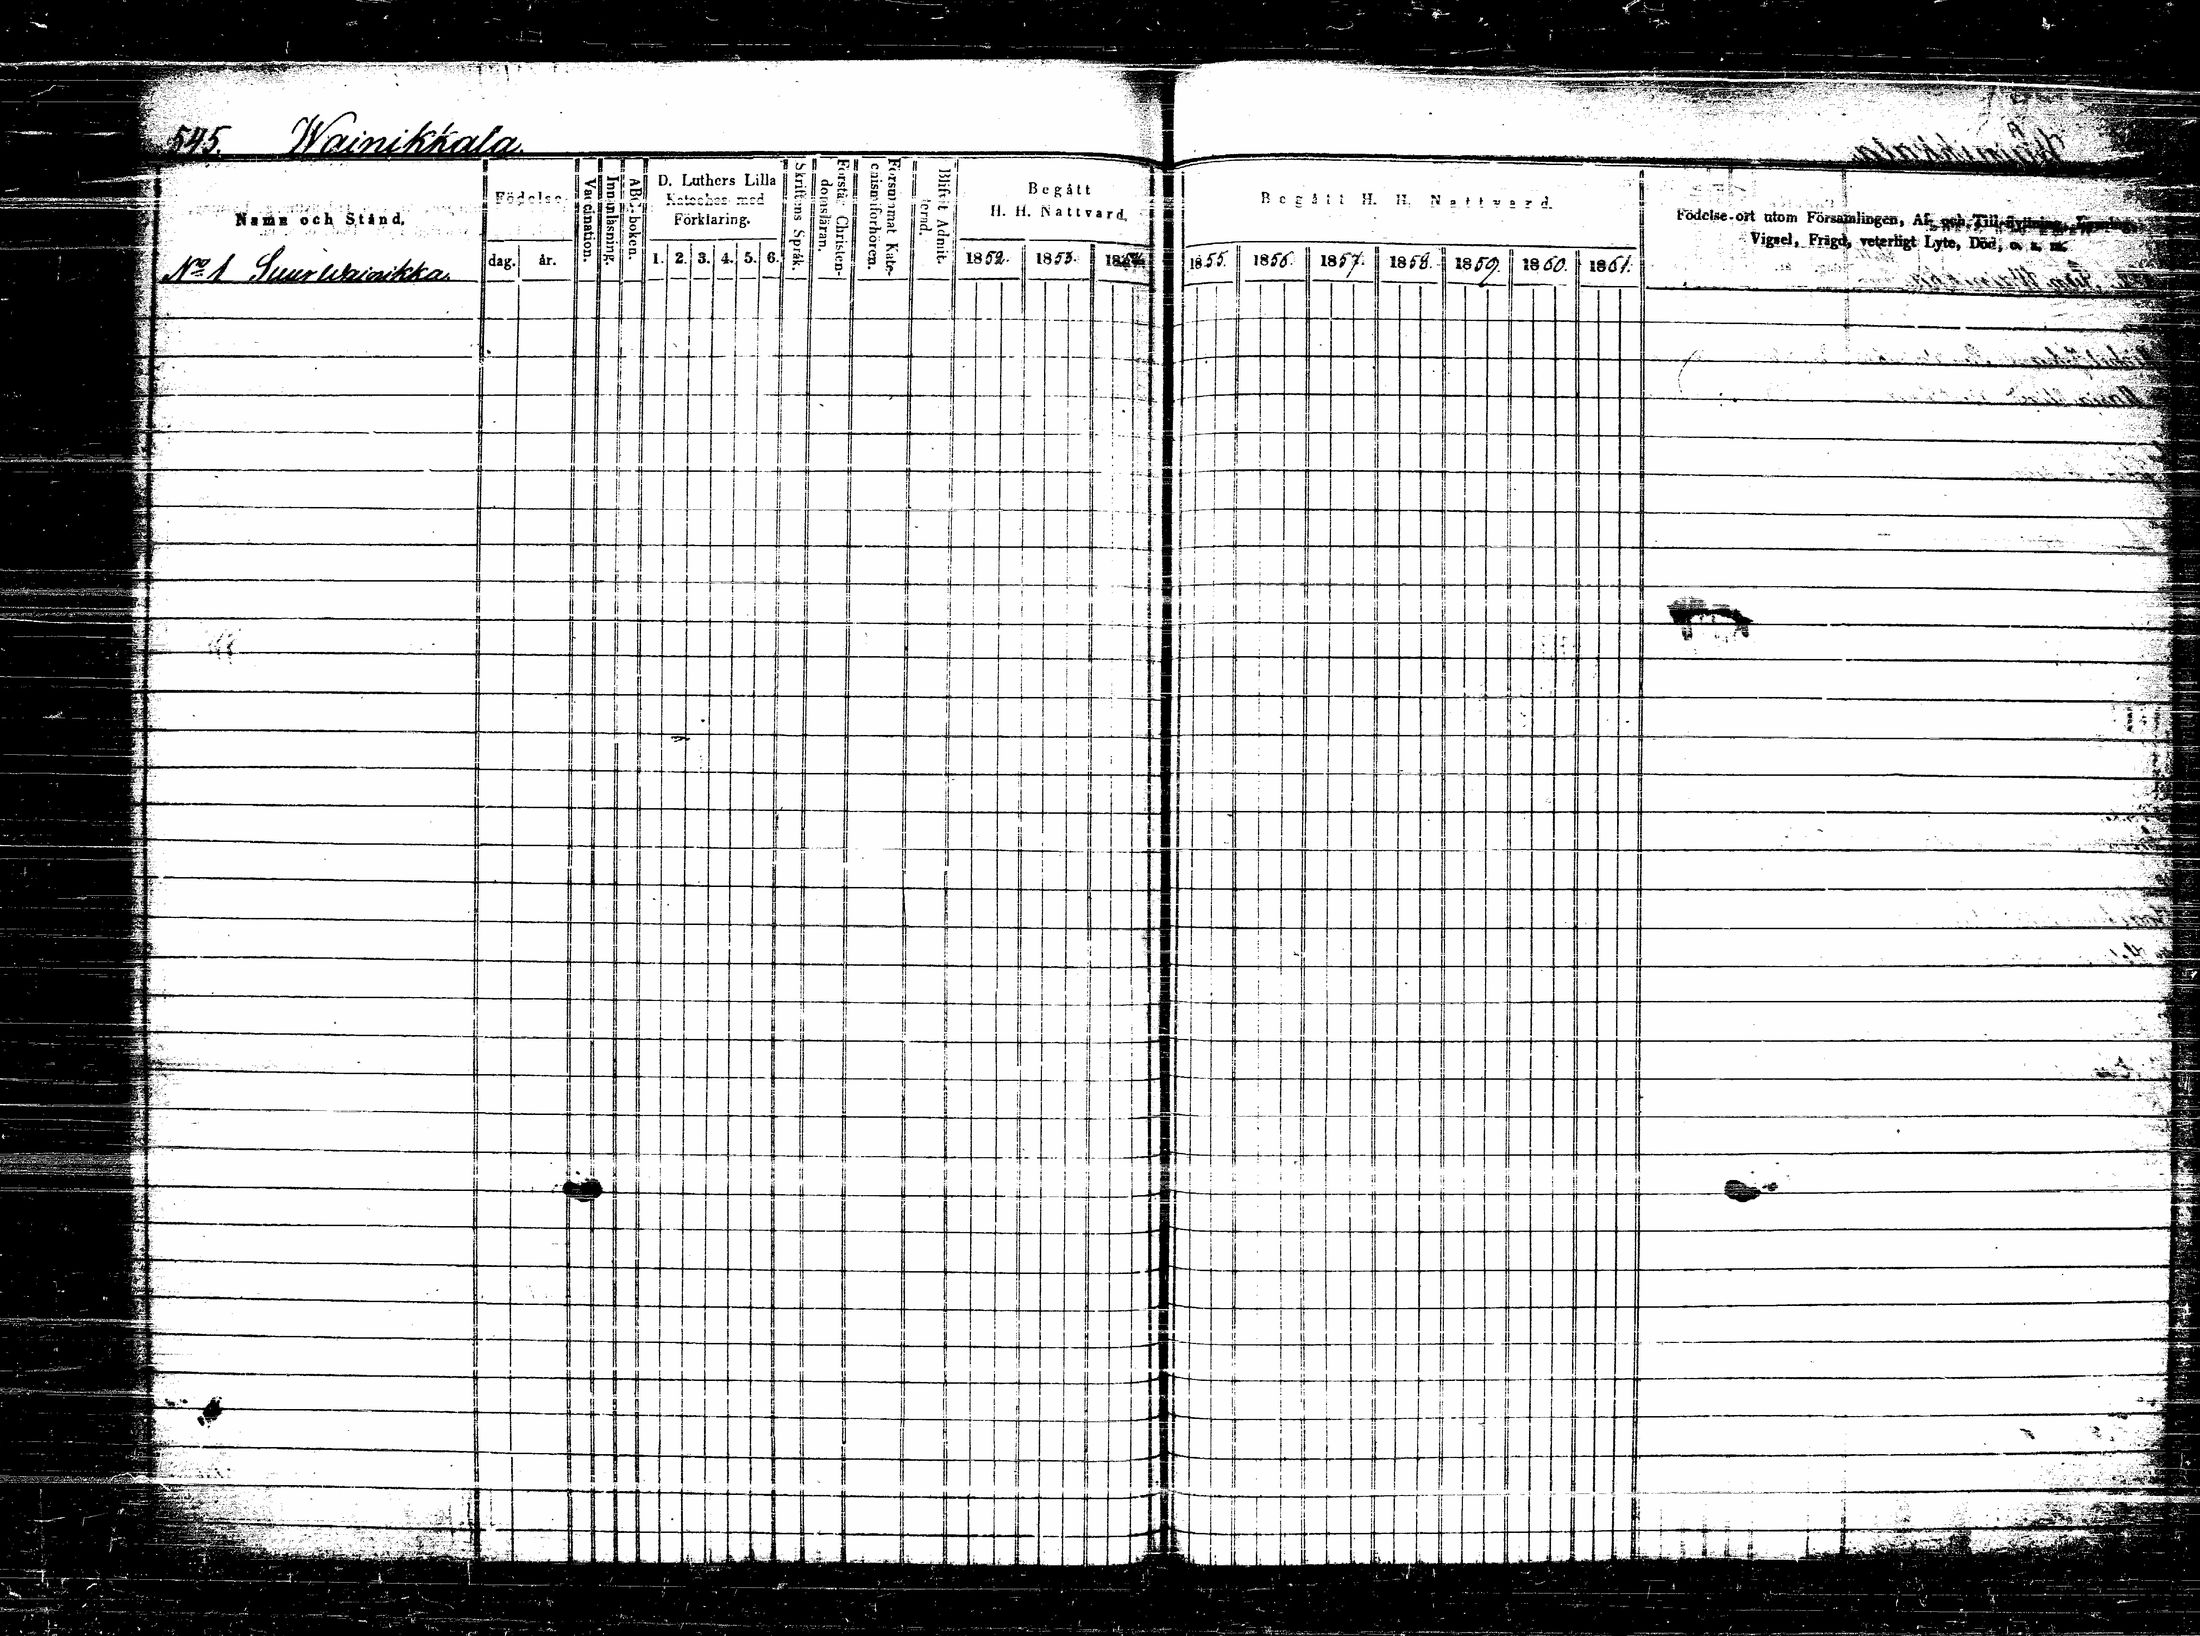 545. Wainikkala.
Namn och Stånd.
Födelse
dag. år.
Vaccination.
Innanläsning.
ABC-boken.
D. Luthers Lilla
Kateches med
Förklaring.
1. 2. 3. 4. 5. 6.
Skriftens Språk.
Förstår Christen-
domsläran.
Försummat Kate-
chismiförhören.
Blifvit Admit-
terad.
Begått
H. H. Nattvard.
1852. 1853. 1854.
Begått H. H. Nattvard.
1855. 1856. 1857. 1858. 1859. 1860. 1861.
Födelse-ort utom Församlingen, Af- och Tillflyttning,
Vigsel, Frägd, veterligt Lyte, Död, o. s. m.
No 1 Suur Wainikka.
Wainikkala